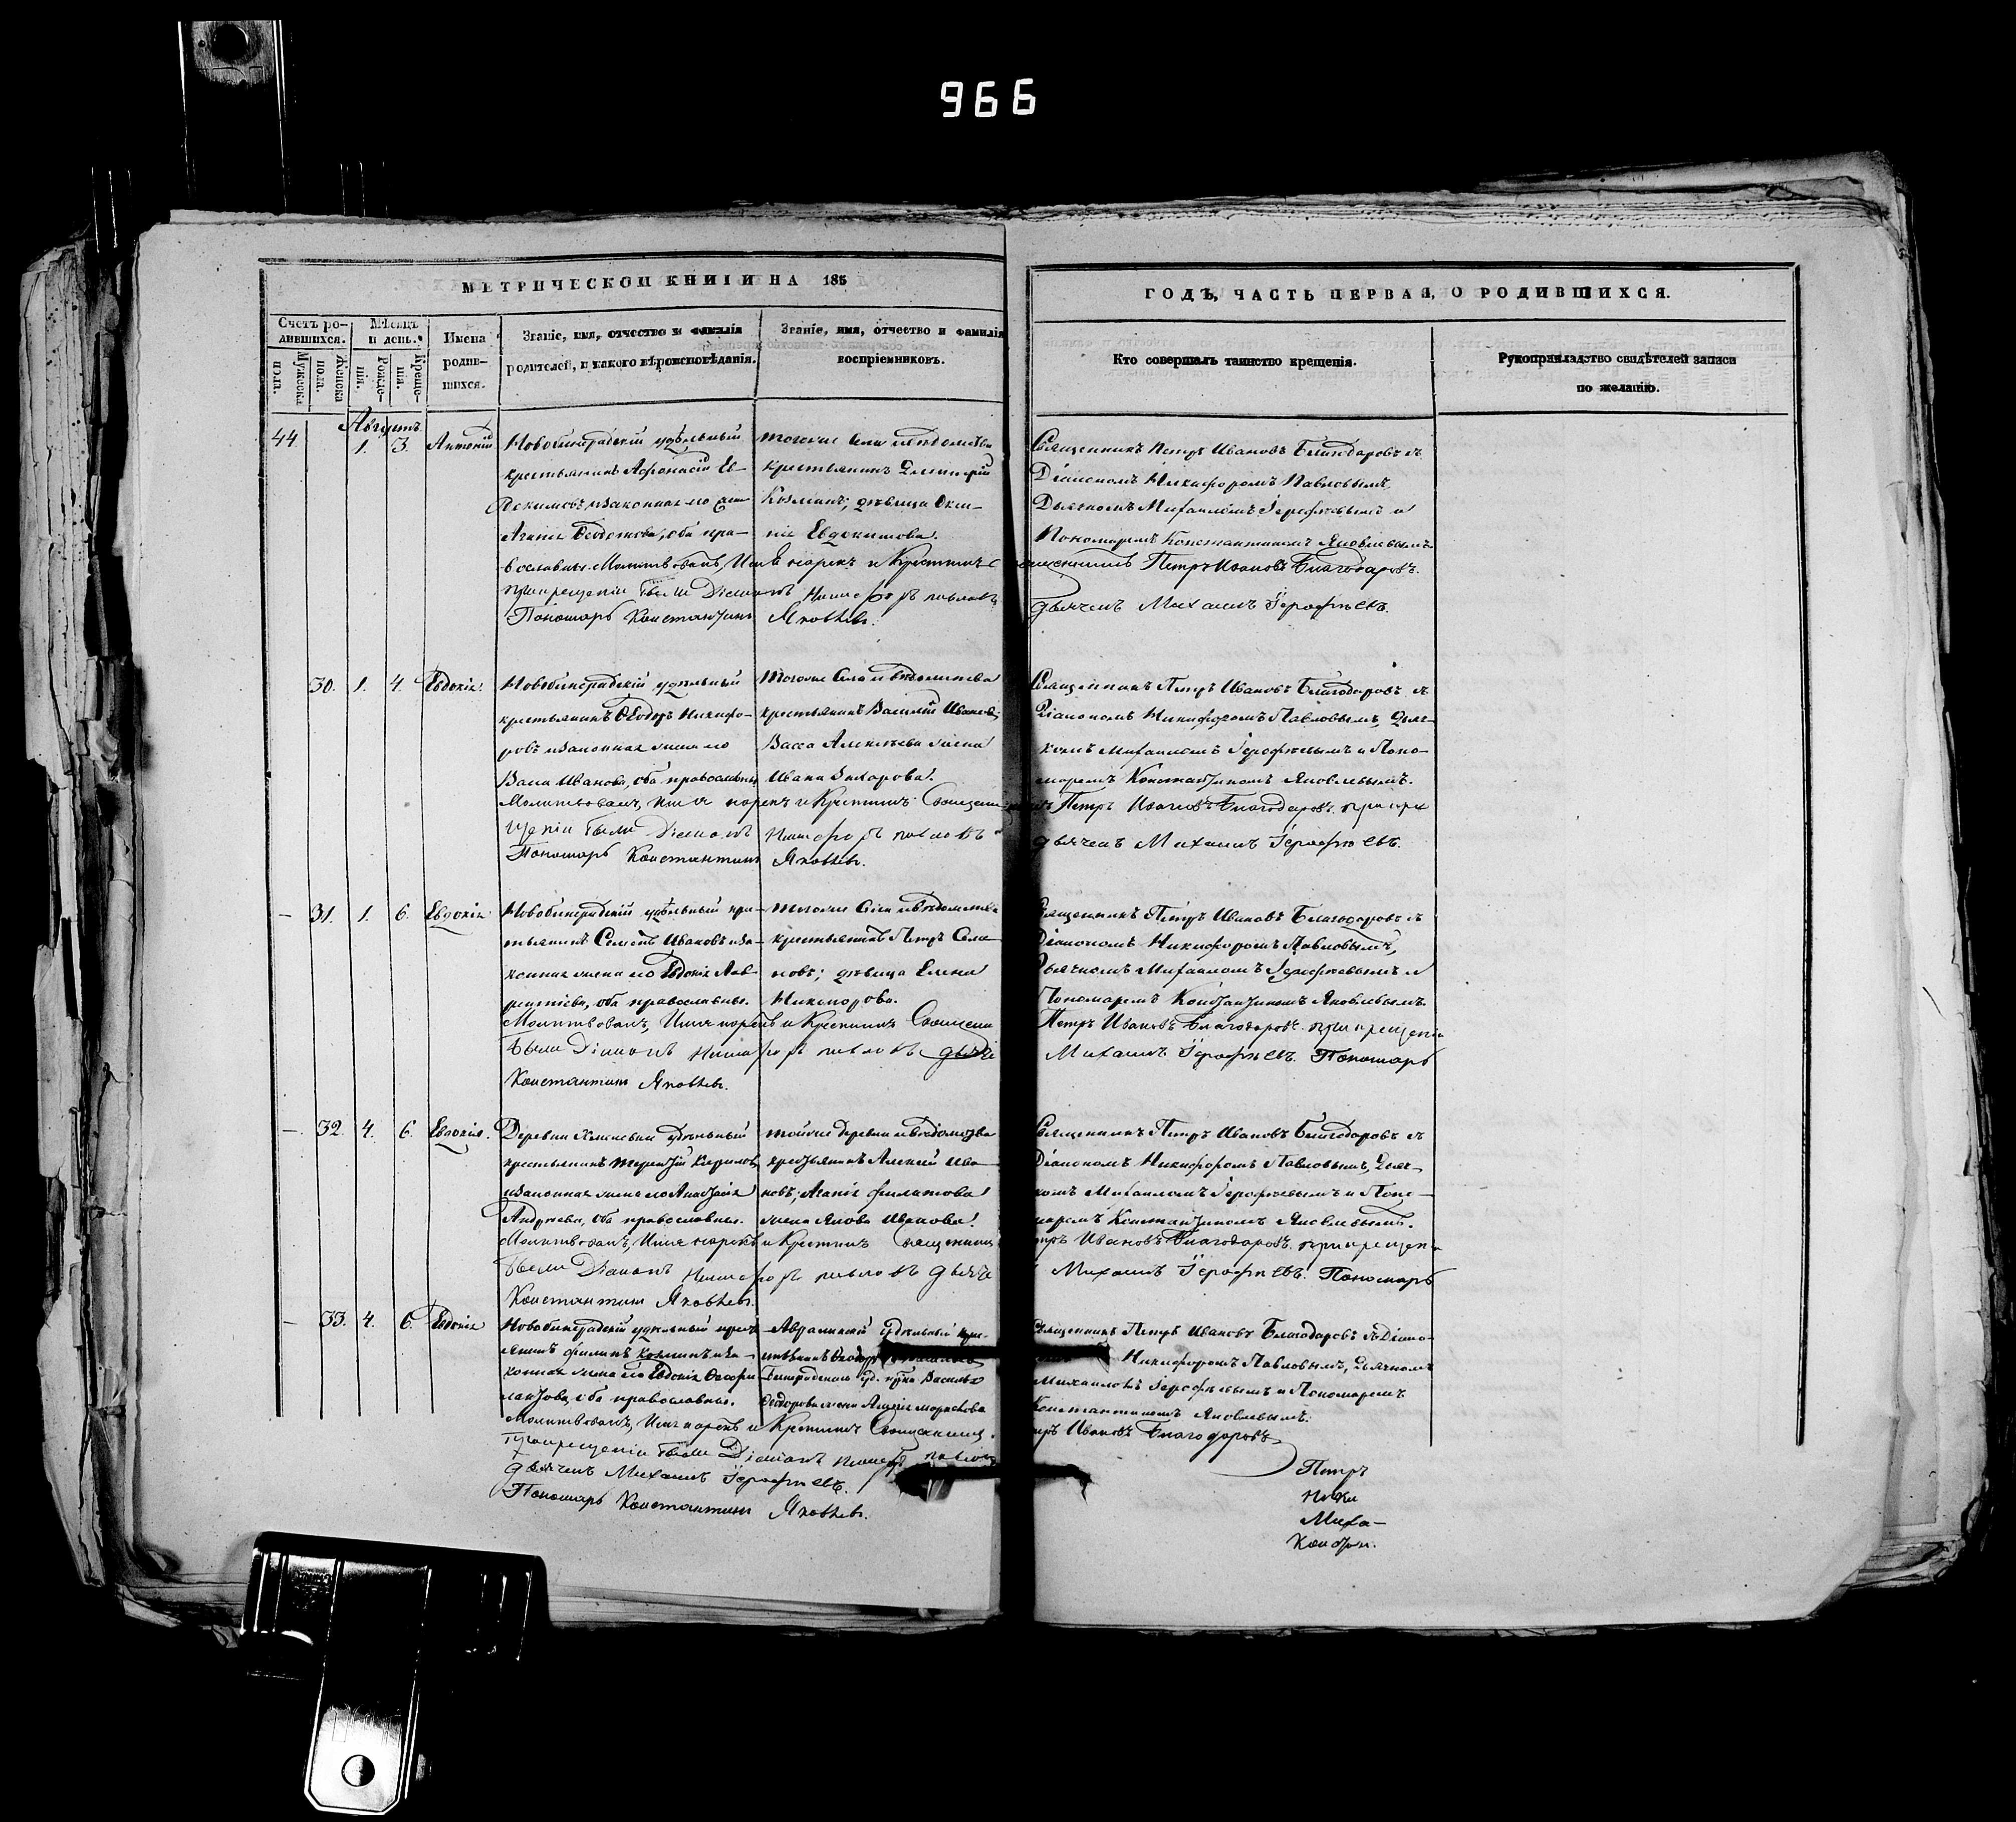 966
МЕТРИЧЕСКОЙ КНИГИ НА 185
ГОДЪ, ЧАСТЬ ПЕРВАЯ, О РОДИВШИХСЯ.
Счетъ родившихся.
Мужеска пола.
Женска пола.
Мѣсяцъ и день.
Рожденія.
Крещенія.
Имена родившихся.
Званіе, имя, отчество и фамилія
родителей, и какого вѣроисповѣданія.
Званіе, имя, отчество и фамилія
воспріемниковъ.
Кто совершалъ таинство крещенія.
Рукоприкладство свидѣтелей записи
по желанію.
Августъ
44 1. 3. Антоній
удѣльный
крестьянинъ Афанасій Ев-
докимовъ и законная его жена
Агапія Ѳеодотова, оба пра-
вославные.
тогоже села и вѣдомства
крестьянинъ Димитрій
Козминъ; дѣвица
Евдокимова.
Священникъ Петръ Ивановъ Благодаровъ съ
Діакономъ Никифоромъ Павловымъ,
Дьячкомъ Михаиломъ Іерофѣевымъ и
Пономаремъ Константиномъ Яковлевымъ
Молитвовалъ, Имя нарекъ и Крестилъ Священникъ Петръ Ивановъ Благодаровъ.
При крещеніи были Діаконъ Никифоръ Павловъ дьячекъ Михаилъ Іерофѣевъ.
Пономарь Константинъ Яковлевъ.
30. 1. 4. Евдокія.
удѣльный
крестьянинъ Ѳеодоръ Никифо-
ровъ и законная жена его
Васса Иванова, оба православные
тогоже Села и вѣдомства
крестьянинъ Василій Ивановъ;
Васса Алексѣева жена
Ивана Захарова.
Священникъ Петръ Ивановъ Благодаровъ съ
Діакономъ Никифоромъ Павловымъ, Дьяч-
комъ Михаиломъ Іерофѣевымъ и Поно-
маремъ Константиномъ Яковлевымъ.
Молитвовалъ, имя нарекъ и Крестилъ Священникъ Петръ Ивановъ Благодаровъ. при кре
щеніи были Діаконъ Никифоръ Павловъ дьячекъ Михаилъ Іерофѣевъ.
Пономарь Константинъ Яковлевъ.
— 31. 1. 6. Евдокія
удѣльный кре-
стьянинъ Семенъ Ивановъ и за-
конная жена его Евдокія Лав-
рентіева, оба православные.
тогоже Села и вѣдомства
крестьянинъ Петръ Семе-
новъ; дѣвица Елена
Никонорова.
Священникъ Петръ Ивановъ Благодаровъ съ
Діакономъ Никифоромъ Павловымъ,
Дьячкомъ Михаиломъ Іерофѣевымъ и
Пономаремъ Константиномъ Яковлевымъ.
Молитвовалъ, Имя нарекъ и Крестилъ Священи Петръ Ивановъ Благодаровъ. при крещеніи
были Діаконъ Никифоръ Павловъ дьяче Михаилъ Іерофѣевъ. Пономарь
Константинъ Яковлевъ.
— 32. 4. 6. Евдокія.
Деревни удѣльный
крестьянинъ Терентій Кириловъ
и законная жена его Анастасія
Андреева, оба православные.
тойже деревни и вѣдомства
крестьянинъ Алексѣй Ива-
новъ; Агапія Филатова
жена Якова Иванова.
Священникъ Петръ Ивановъ Благодаровъ съ
Діакономъ Никифоромъ Павловымъ, Дьяч-
комъ Михаиломъ Іерофѣевымъ и Поно-
маремъ Константиномъ Яковлевымъ.
Молитвовалъ, Имя нарекъ и Крестилъ Священникъ Петръ Ивановъ Благодаровъ. при крещени
были Діаконъ Никифоръ Павловъ дьяче Михаилъ Іерофѣевъ. Пономарь
Константинъ Яковлевъ.
— 33. 4. 6. Евдокія
удѣльный кресть
янинъ Филипъ Козминъ и за-
конная жена его Евдокія
оба православные.
удѣльный кре-
стьянинъ
Василья
Ѳеодорова жена
Священникъ Петръ Ивановъ Благодаровъ съ Діако-
Никифоромъ Павловымъ, Дьячкомъ
Михаиломъ Іерофѣевымъ и Пономаремъ
Константиномъ Яковлевымъ.
Молитвовалъ, Имя нарекъ и Крестилъ Священникъ Петръ Ивановъ Благодаровъ
При крещеніи были Діаконъ
дьячекъ Михаилъ Іерофѣевъ.
Пономарь Константинъ Яковлевъ.
Петръ
Ники
Миха-
Констан.